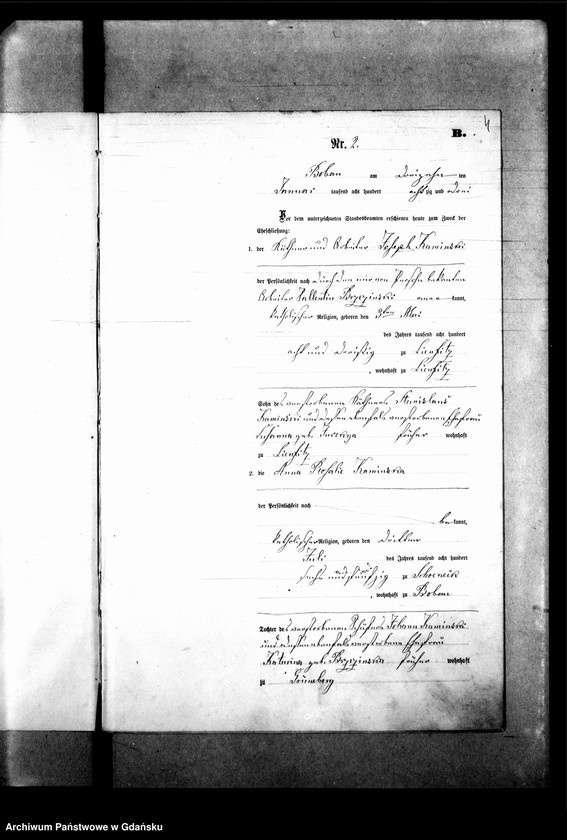 4
B.
Nr. 2.
Boban am dreizehn ten
Januar tausend acht hundert achtzig und drei
Vor dem unterzeichneten Standesbeamten erschienen heute zum Zweck der
Eheschließung:
1. der Käthner und Arbeiter Joseph Kaminski
der Persönlichkeit nach durch den mir von Person bekannten
Arbeiter Vallentin Brzezinski aner kannt,
katholischer Religion, geboren den 3ten Mai
des Jahres tausend acht hundert
acht und dreißig zu Lienfitz
, wohnhaft zu Lienfitz
Sohn des verstorbenen Käthners Stanislaus
Kaminski und dessen ebenfalls verstorbenen Ehefrau
Susanna geb. früher wohnhaft
zu Lienfitz
2. die Anna Rosalie Kaminska
der Persönlichkeit nach
bekannt,
katholischer Religion, geboren den dritten
Juli des Jahres tausend acht hundert
sechs und fünfzig zu Schoeneck
, wohnhaft zu Boban
Tochter des verstorbenen Schäfers Johann Kaminski
und dessen ebenfalls verstorbene Ehefrau
Katarina geb. Brzezinska früher wohnhaft
zu Grüneberg
Archiwum Państwowe w Gdańsku